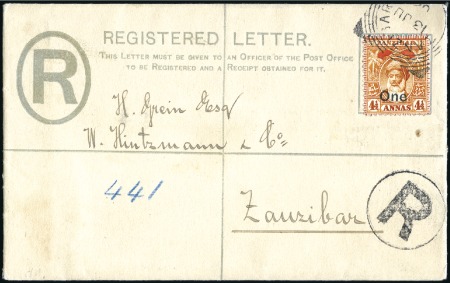 REGISTERED LETTER.
THIS LETTER MUST BE GIVEN TO AN OFFICER OF THE POST OFFICE
TO BE REGISTERED AND A RECEIPT OBTAINED FOR IT.
R
One
4½ 4½
ANNAS
H. Grein Esq
W. Hintzmann & Co
441
Zanzibar
R